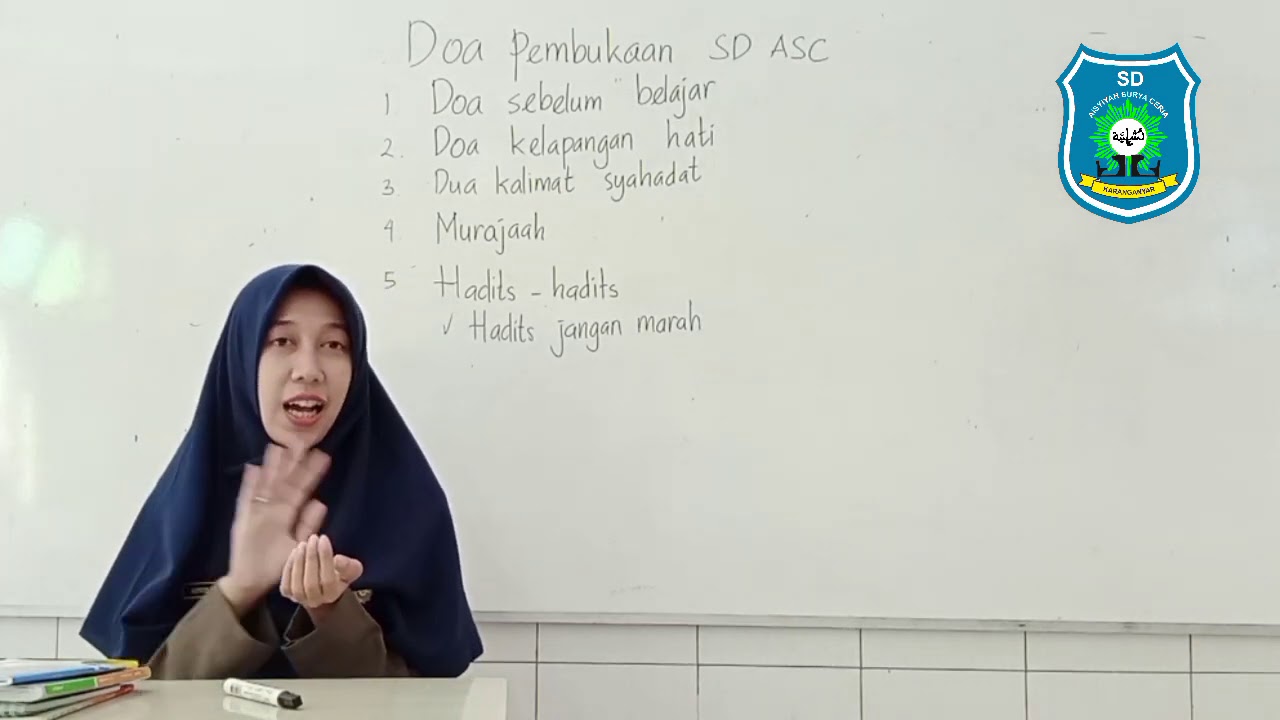 Doa pembukaan SD ASC
1 Doa sebelum belajar
2. Doa kelapangan hati
3 Dua kalimat syahadat
4 Murajaah
5 Hadits - hadits
✓ Hadits jangan marah
SD
AISYIYAH SURYA CERIA
KARANGANYAR